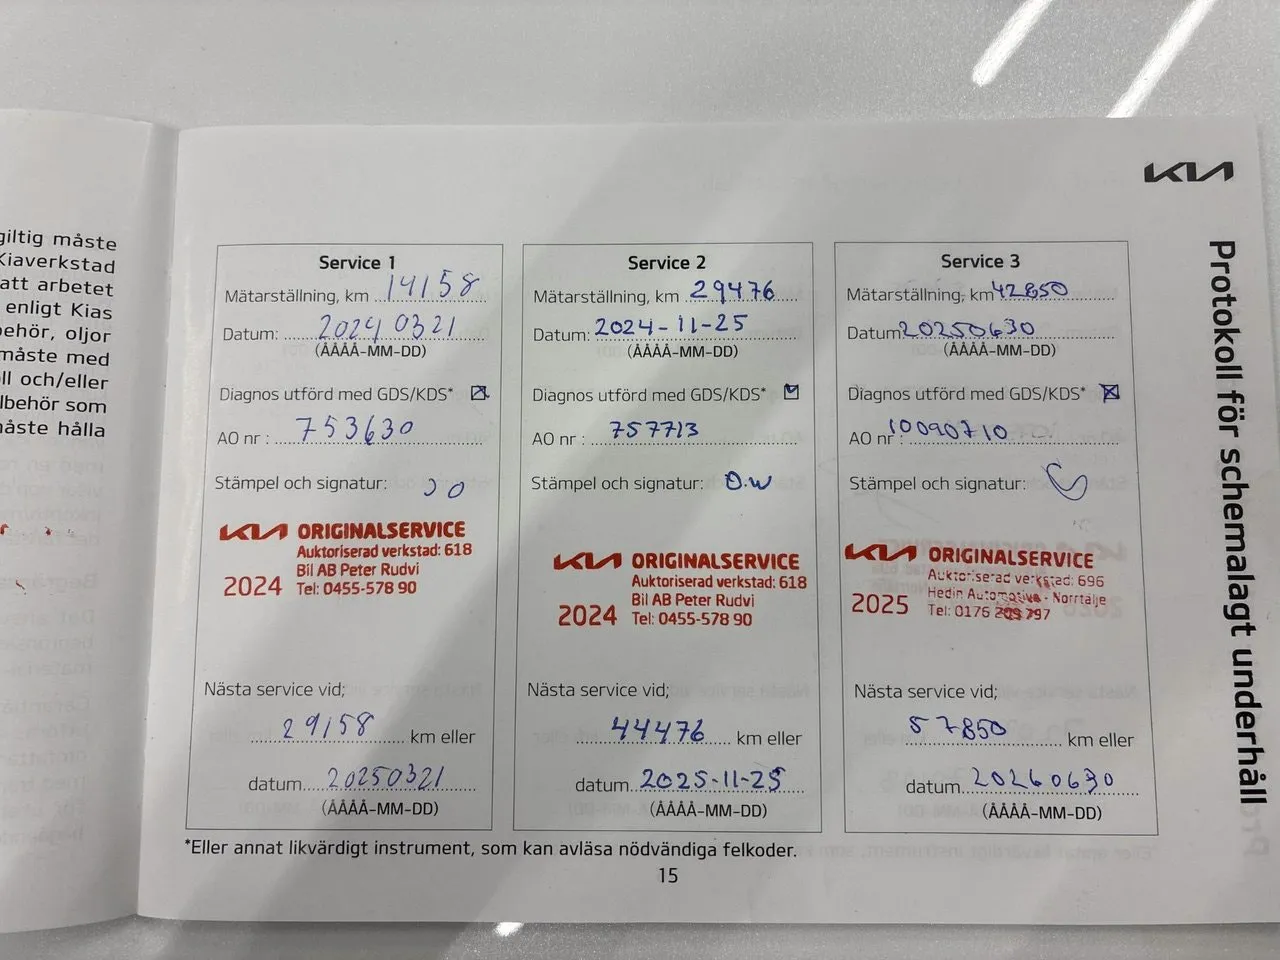 giltig måste
Kiaverkstad
att arbetet
enligt Kias
behör, oljor
måste med
ll och/eller
lbehör som
måste hålla
KIA
Protokoll för schemalagt underhåll
Service 1
Mätarställning, km 14158
Datum: 20240321
(ÅÅÅÅ-MM-DD)
Diagnos utförd med GDS/KDS*
AO nr : 753630
Stämpel och signatur:
KIA ORIGINALSERVICE
Auktoriserad verkstad: 618
Bil AB Peter Rudvi
2024 Tel: 0455-578 90
Nästa service vid;
29158 km eller
datum 20250321
(ÅÅÅÅ-MM-DD)
Service 2
Mätarställning, km 29476
Datum: 2024-11-25
(ÅÅÅÅ-MM-DD)
Diagnos utförd med GDS/KDS*
AO nr : 757713
Stämpel och signatur: O.W
KIA ORIGINALSERVICE
Auktoriserad verkstad: 618
Bil AB Peter Rudvi
2024 Tel: 0455-578 90
Nästa service vid;
44476 km eller
datum 2025-11-25
(ÅÅÅÅ-MM-DD)
Service 3
Mätarställning, km 42850
Datum 20250630
(ÅÅÅÅ-MM-DD)
Diagnos utförd med GDS/KDS*
AO nr : 10090710
Stämpel och signatur:
KIA ORIGINALSERVICE
Auktoriserad verkstad: 696
Hedin Automotive - Norrtälje
2025 Tel: 0176
Nästa service vid;
57850 km eller
datum 20260630
(ÅÅÅÅ-MM-DD)
*Eller annat likvärdigt instrument, som kan avläsa nödvändiga felkoder.
15